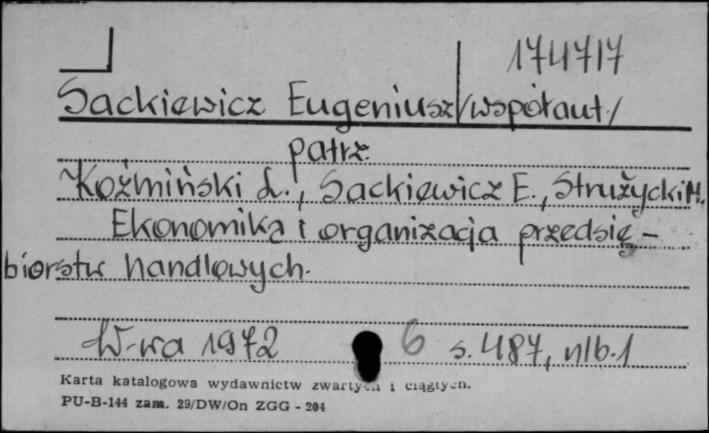 174717
Sackiewicz Eugeniusz /współaut./
patrz.
Koźmiński L., Sackiewicz E., Strużycki M.
Ekonomika i organizacja przedsię-
biorstw handlowych.
W-wa 1972 6 s. 487, nlb. 1
Karta katalogowa wydawnictw zwartych i ciągłych.
PU-B-144 zam. 29/DW/On ZGG - 204